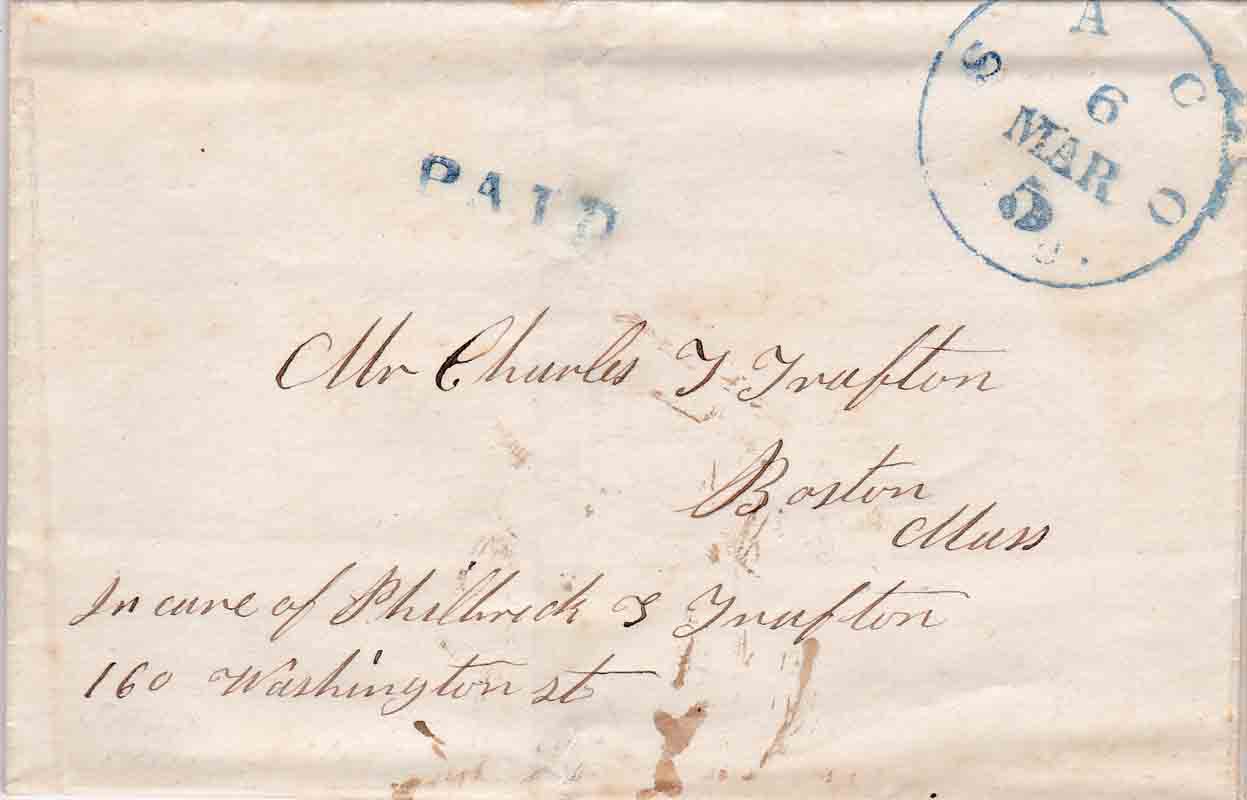 SACO
6
MAR
5
PAID
Mr Charles T. Trafton
Boston
Mass
In care of Philbrick & Trafton
160 Washington st